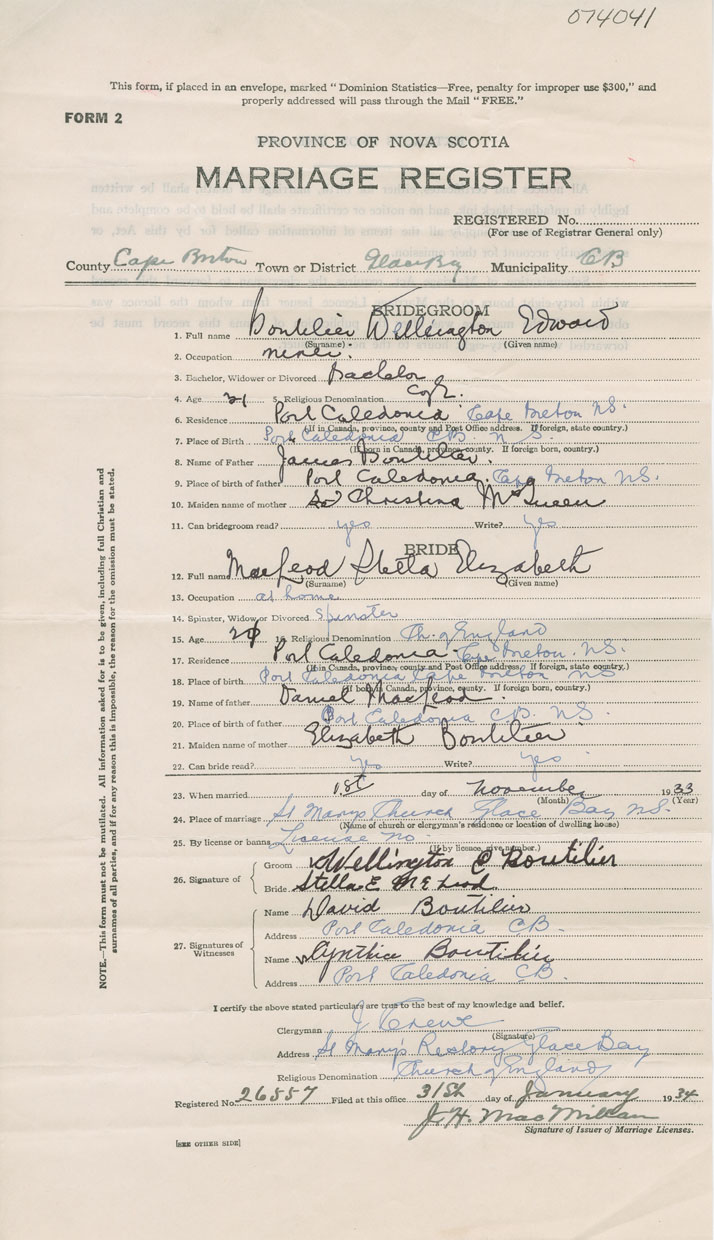 074041
This form, if placed in an envelope, marked "Dominion Statistics—Free, penalty for improper use $300," and
properly addressed will pass through the Mail "FREE."
FORM 2
PROVINCE OF NOVA SCOTIA
MARRIAGE REGISTER
REGISTERED No.
(For use of Registrar General only)
County Cape Breton Town or District Glace Bay Municipality CB
BRIDEGROOM
1. Full name Boutilier Wellington Edward
(Surname) (Given name)
2. Occupation miner.
3. Bachelor, Widower or Divorced Bachelor
4. Age 21 5. Religious Denomination C of E.
6. Residence Port Caledonia Cape Breton NS.
(If in Canada, province, county and Post Office address. If foreign, state country.)
7. Place of Birth Port Caledonia CB. N.S.
(If born in Canada, province, county. If foreign born, country.)
8. Name of Father James Boutilier.
9. Place of birth of father Port Caledonia. Cape Breton NS.
10. Maiden name of mother Christina McQueen
11. Can bridegroom read? yes Write? yes
BRIDE
12. Full name MacLeod Stella Elizabeth
(Surname) (Given name)
13. Occupation at home
14. Spinster, Widow or Divorced Spinster
15. Age 20 16. Religious Denomination Ch. of England
17. Residence Port Caledonia Cape Breton. NS.
(If in Canada, province, county and Post Office address. If foreign, state country.)
18. Place of birth Port Caledonia Cape Breton NS
(If born in Canada, province, county. If foreign born, country.)
19. Name of father Daniel MacLeod
20. Place of birth of father Port Caledonia C.B. N.S.
21. Maiden name of mother Elizabeth Boutilier
22. Can bride read? yes Write? yes
23. When married 1st day of November 1933
(Month) (Year)
24. Place of marriage St Marys Church Glace Bay NS.
(Name of church or clergyman's residence or location of dwelling house)
25. By license or banns License no
(If by licence, give number.)
26. Signature of
Groom Wellington E Boutilier
Bride Stella E McLeod
27. Signatures of Witnesses
Name David Boutilier
Address Port Caledonia CB.
Name Cynthia Boutilier
Address Port Caledonia CB.
I certify the above stated particulars are true to the best of my knowledge and belief.
Clergyman J
(Signature)
Address St Mary's Rectory Glace Bay
Religious Denomination Church of England
Registered No. 26557 Filed at this office 31st day of January 1934
J. H. MacMillan
Signature of Issuer of Marriage Licenses.
[SEE OTHER SIDE]
NOTE.—This form must not be mutilated. All information asked for is to be given, including full Christian and
surnames of all parties, and if for any reason this is impossible, the reason for the omission must be stated.